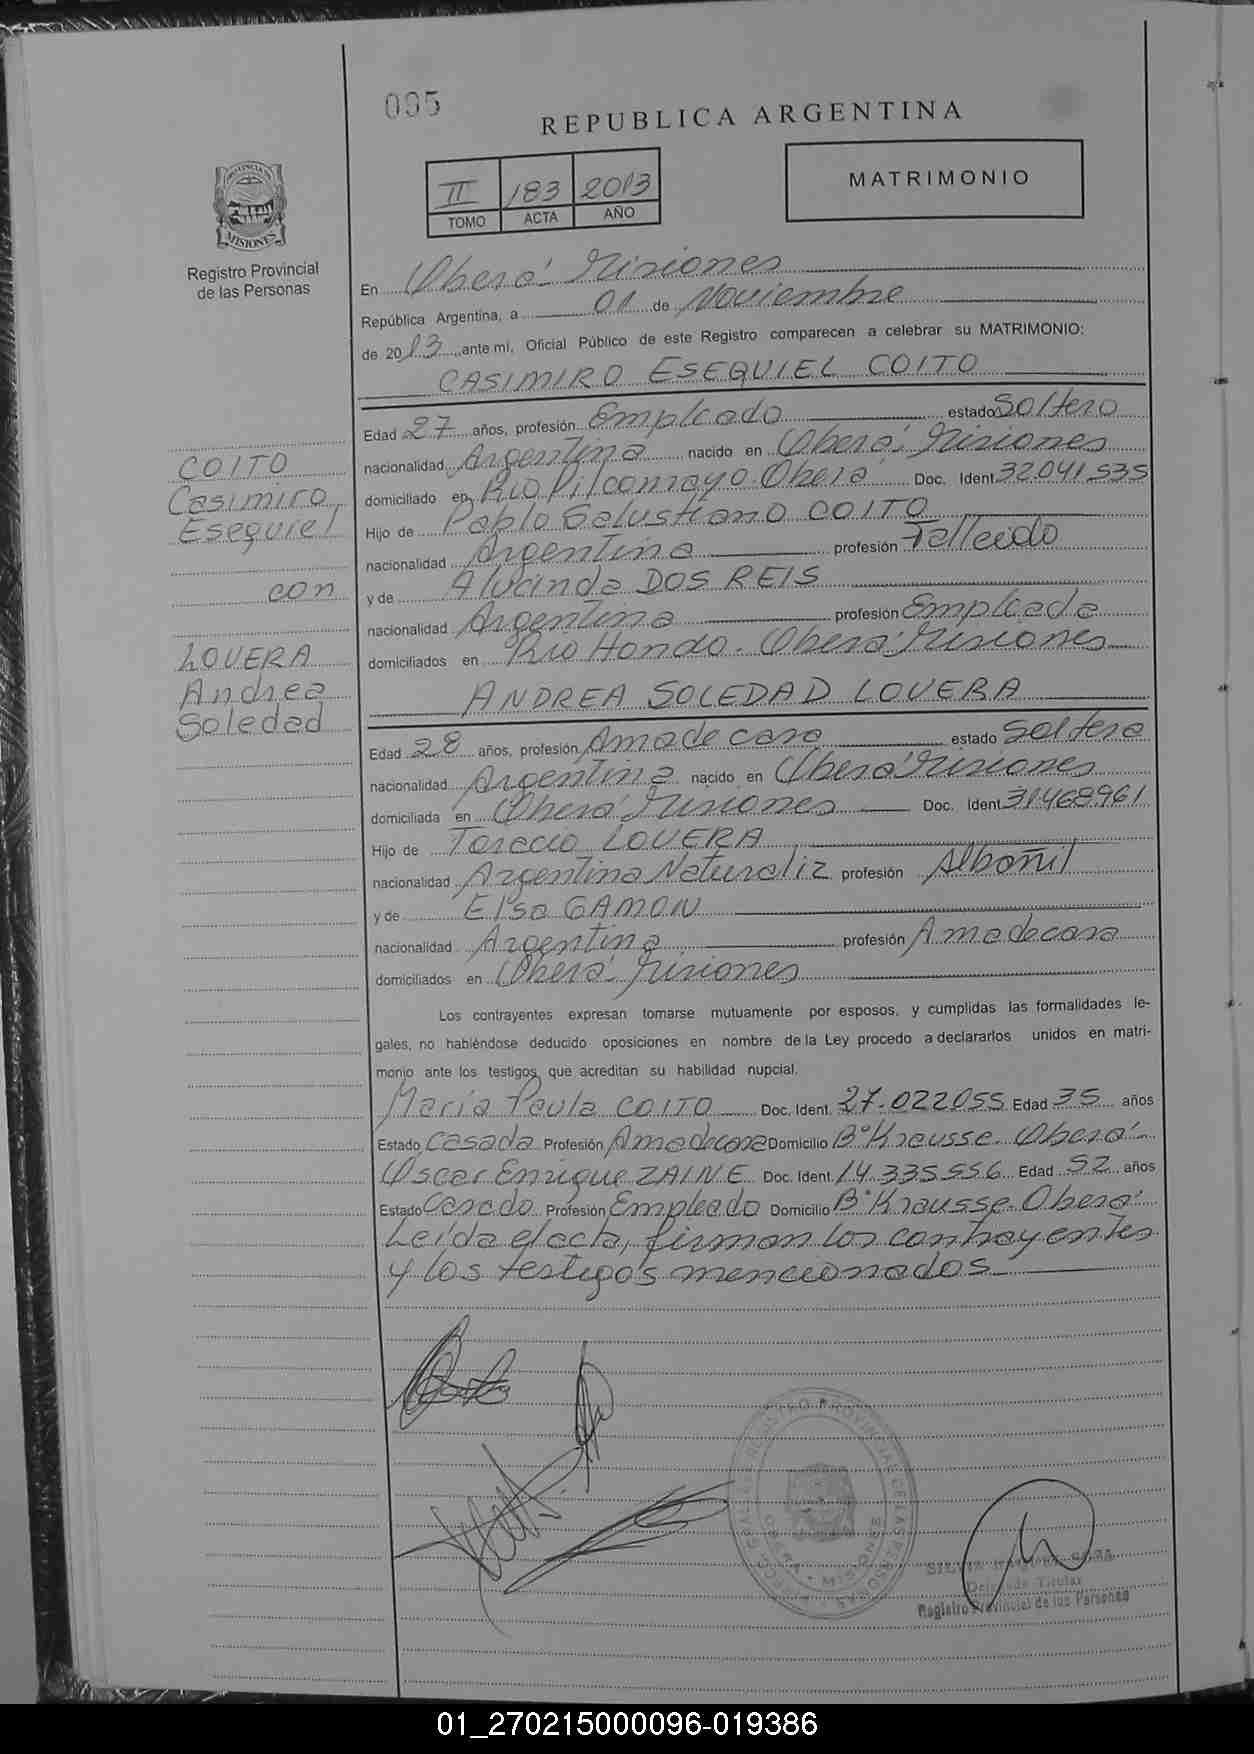 095
REPUBLICA ARGENTINA
II 183 2013
TOMO ACTA AÑO
MATRIMONIO
PROVINCIA DE
MISIONES
Registro Provincial
de las Personas
En Oberá Misiones
República Argentina, a 01 de Noviembre
de 2013 ante mí, Oficial Público de este Registro comparecen a celebrar su MATRIMONIO:
CASIMIRO ESEQUIEL COITO
Edad 27 años, profesión Empleado estado Soltero
nacionalidad Argentina nacido en Oberá Misiones
domiciliado en Río Pilcomayo. Oberá Doc. Ident 32.041.535
Hijo de Pablo Salustiano COITO
nacionalidad Argentina profesión Fallecido
y de Alvcinda DOS REIS
nacionalidad Argentina profesión Empleada
domiciliados en Río Hondo. Oberá Misiones
ANDREA SOLEDAD LOVERA
Edad 28 años, profesión Ama de casa estado Soltera
nacionalidad Argentina nacido en Oberá Misiones
domiciliada en Oberá Misiones Doc. Ident 31468961
Hijo de LOVERA
nacionalidad Argentina Naturaliz profesión Albañil
y de Elsa GAMON
nacionalidad Argentina profesión Ama de casa
domiciliados en Oberá Misiones
COITO
Casimiro
Esequiel
con
LOVERA
Andrea
Soledad
Los contrayentes expresan tomarse mutuamente por esposos, y cumplidas las formalidades le-
gales, no habiéndose deducido oposiciones en nombre de la Ley procedo a declararlos unidos en matri-
monio ante los testigos que acreditan su habilidad nupcial.
María Paula COITO Doc. Ident. 27.022055 Edad 35 años
Estado Casada Profesión Ama de casa Domicilio B° Krausse. Oberá
Oscar Enrique ZAINE Doc. Ident. 14.335.556 Edad 52 años
Estado Casado Profesión Empleado Domicilio B° Krausse. Oberá
Leída el acta, firman los contrayentes
y los testigos mencionados
OBERA - MISIONES
SILVIA
Delegada Titular
Registro Provincial de las Personas
01_270215000096-019386